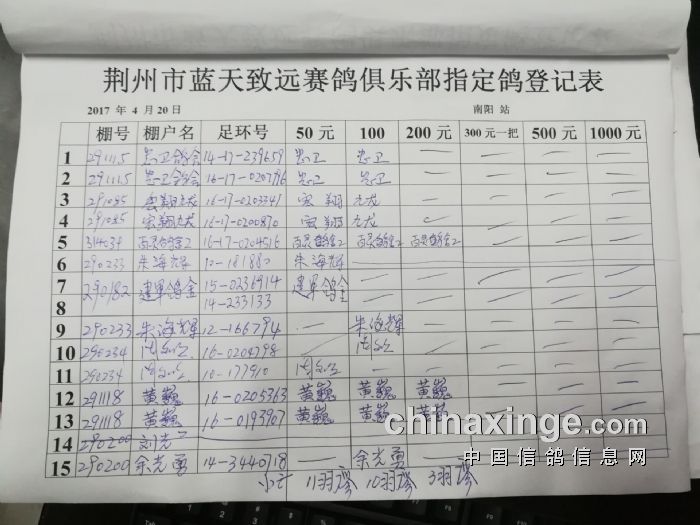 荆州市蓝天致远赛鸽俱乐部指定鸽登记表
2017 年 4 月 20 日 南阳 站
棚号 棚户名 足环号 50 元 100 200 元 300 元一把 500 元 1000 元
1 291115 忠卫鸽舍 14-17-239659 忠卫 忠卫 — — — —
2 291115 忠卫鸽舍 16-17-0207796 忠卫 忠卫 — — — —
3 291085 宏翔九龙 16-17-0203341 宏翔 九龙 — — — —
4 291085 宏翔九龙 16-17-0200870 宏翔 九龙 — — — —
5 314034 16-17-0204516 — — —
6 290233 朱海辉 10-181880 朱海辉 — — — — —
7 290182 建军鸽舍 15-0236914 建军鸽舍 — — — — —
8 14-233133 — — — — —
9 290233 朱海辉 12-166794 — 朱海辉 — — — —
10 290234 16-0204798 — — — —
11 290234 10-177910 — — — — —
12 291118 黄巍 16-0205363 黄巍 黄巍 黄巍 — — —
13 291118 黄巍 16-0193907 黄巍 黄巍 黄巍
14 290200
15 290200 余光勇 14-3440718 — 余光勇 —
小计 11羽 10羽 3羽
chinaxinge.com
中国信鸽信息网